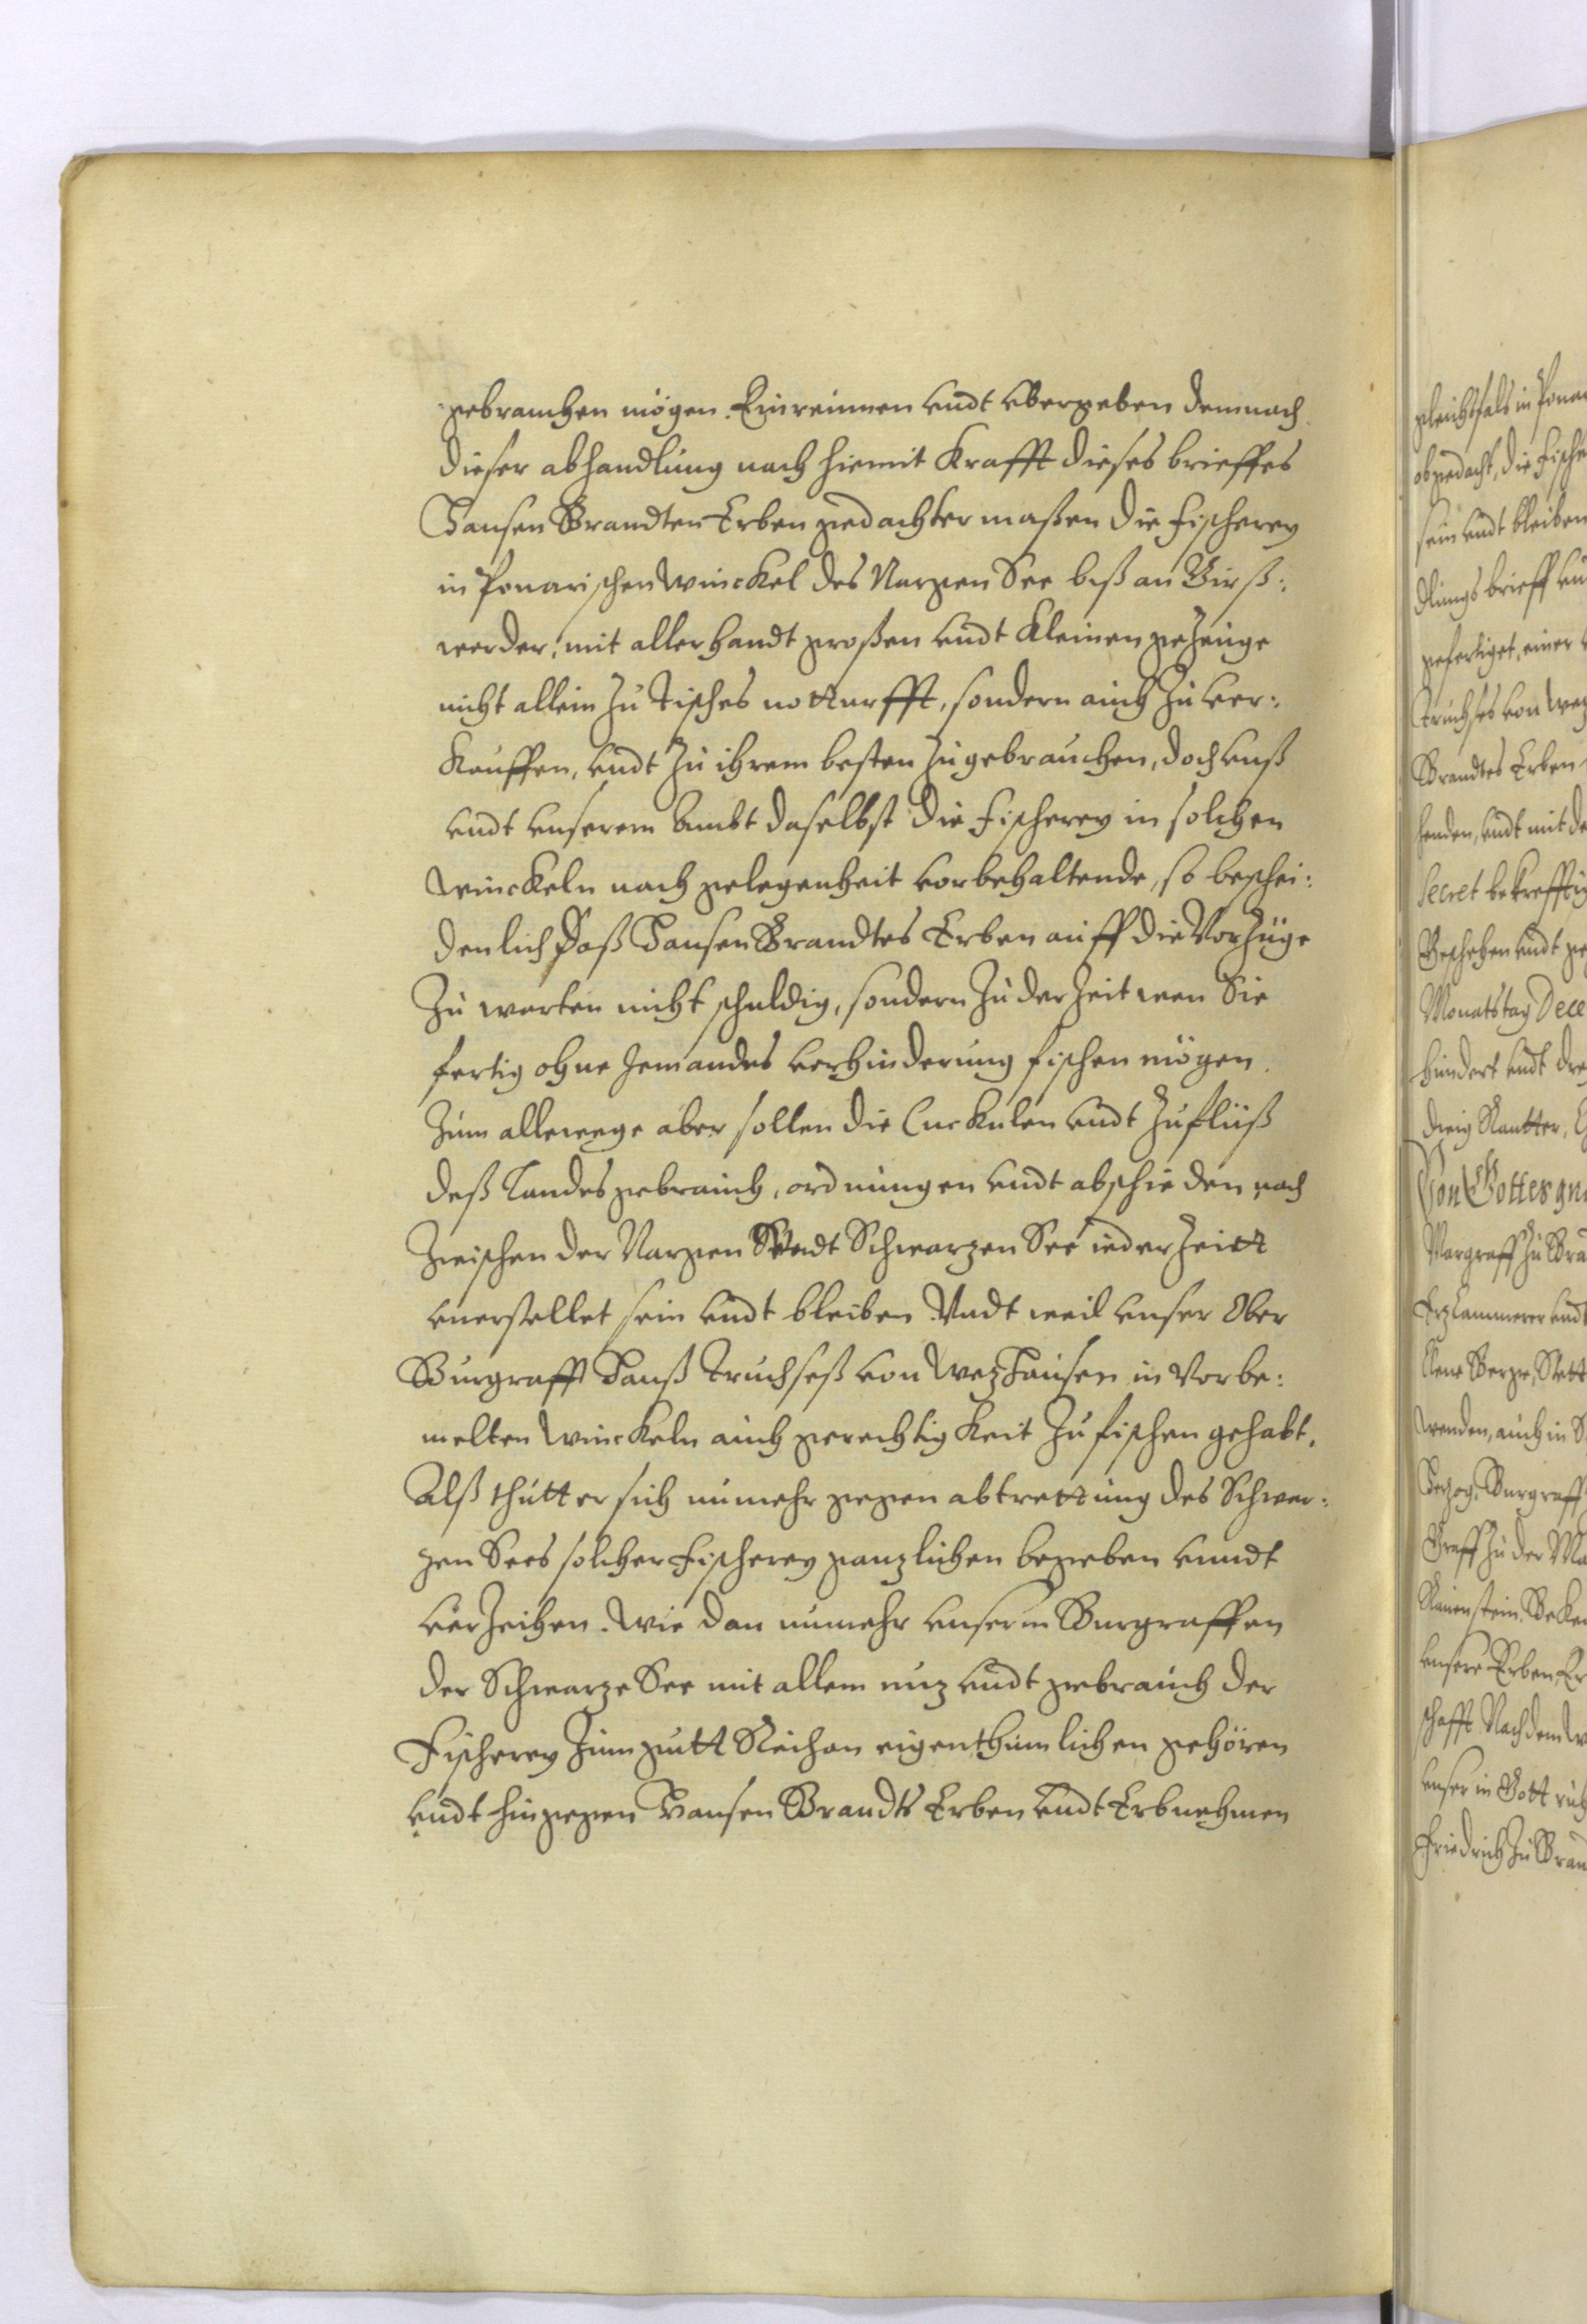 gebrauchen mögen. Einreumen undt ubergeben demnach
dieser abhandlung nach hiemit Krafft dieses brieffes
Hansen Brandten Erben gedachter maßen die Fischerey
in Ponarischen winckel des Nargen See biß an Birß:
werder, mit allerhandt großen undt Kleinen gezeuge
nicht allein zu Tisches notturfft, sondern auch zu ver:
Kauffen, undt zu ihrem besten zugebrauchen, doch unß
undt unserem Ambt daselbst die Fischerey in solchen
winckeln nach gelegenheit vorbehaltende, so beschei:
denlich daß Hansen Brandtes Erben auff die Vorzüge
zu warten nicht schuldig, sondern zu der Zeit wen Sie
fertig ohne Jemandes verhinderung fischen mögen.
Zum allewege aber sollen die Cuckulen undt Zuflüß
deß Landes gebrauch, ordnungen undt abschieden nach
Zwischen der Nargen undt Schwarzen See ieder Zeitt
unerstellet sein undt bleiben. Undt weil unser Ober
Burgraff Hanß Truchseß von Wezhausen in Vorbe:
melten winckeln auch gerechtigKeit zu fischen gehabt.
Alß thutt er sich nunmehr gegen abtrettung des Schwar:
zen Sees solcher Fischerey ganzlichen begeben unndt
verzeihen. Wie dan nunmehr unserm Burgraffen
der Schwarze See mit allem nuz undt gebrauch der
Fischerey zum gutt Reichan eigenthumlichen gehören
undt hingegen Hansen Brandts Erben undt Erbnehmen
gleichsfals in Ponar
obgedacht, die Fische
sein undt bleiben
dlungs brieff
gefertiget, einer
Truchses von Wez
Brandtes Erben
henden, undt mit de
Secret bekrefftig
Geschehen undt ge
Monatstag Dece
hundert undt drey
Von Gottes gna
Margraff zu Bra
ErzCammerer undt
wenden, auch in S
Herzog, Burgraff
Graff zu der Ma
unsere Erben, Er
schafft. Nachdem w
unser in Gott ruh
Friedrich zu Bran